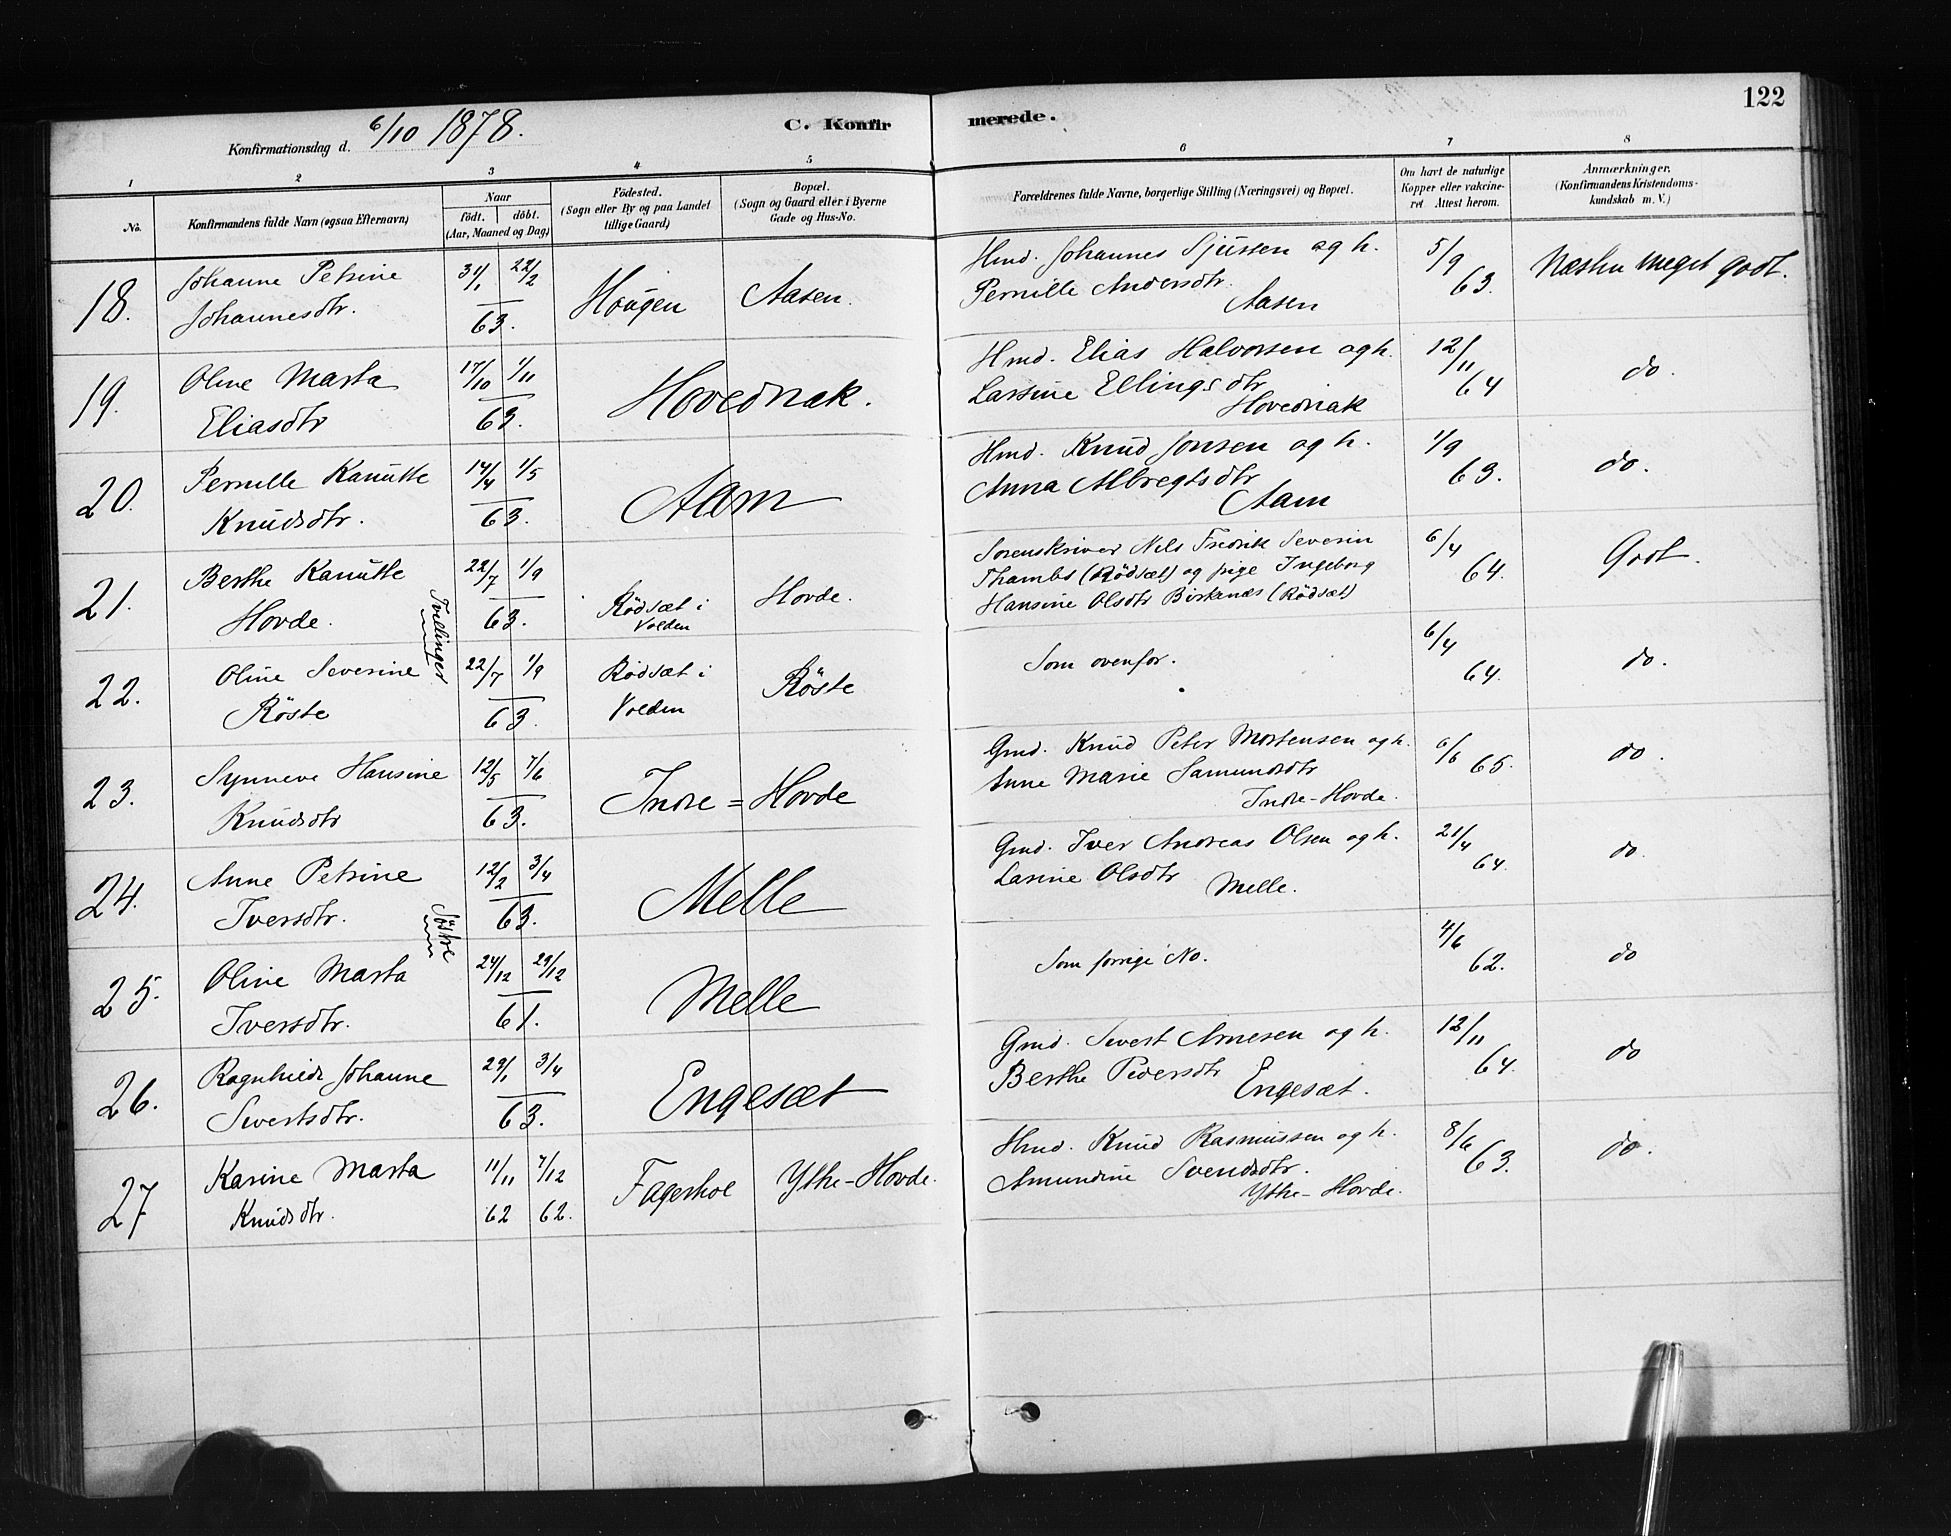 122
Konfirmationsdag d. 6/10 1878.
C. Konfirmerede.
1 2 3 4 5 6 7 8
No.
Konfirmandens fulde Navn (ogsaa Efternavn)
Naar
født. döbt.
(Aar, Maaned og Dag)
Födested.
(Sogn eller By og paa Landet
tillige Gaard)
Bopæl.
(Sogn og Gaard eller i Byerne
Gade og Hus-No.
Forældrenes fulde Navne, borgerlige Stilling (Næringsvei) og Bopæl.
Om havt de naturlige
Kopper eller vakcine-
ret Attest herom.
Anmærkninger.
(Konfirmandens Kristendoms-
kundskab m. V.)
18. Johanne Petrine
Johannesdtr.
31/1 22/2
63.
Haugen Aasen.
Hmd. Johannes Sjursen og h.
Pernille Andersdtr.
Aasen
5/9
63.
Næsten meget godt.
19. Oline Marta
Eliasdtr
17/10 1/11
63.
Hovednak.
Hmd. Elias Halvorsen og h.
Larsine Ellingsdtr
Hovednak
12/11
64
do.
20. Pernille Kanutte
Knudsdtr.
14/4 1/5
63.
Aam
Hmd. Knud Jonsen og h.
Anna Albregtsdtr
Aam
1/9
63.
do.
21. Berthe Kanutte
Hovde.
Tvillinger
22/7 1/9
63.
Rödsæt i
Volden
Hovde.
Sorenskriver Nils Fredrik Severin
Thambs (Rödsæt) og pige Ingeborg
Hansine Olsdtr Birkenæs (Rödsæt)
6/4
64.
Godt.
22. Oline Severine
Röste
22/7 1/9
63.
Rödsæt i
Volden
Röste
Som ovenfor.
6/4
64.
do.
23. Synneve Hansine
Knudsdtr
12/5 7/6
63.
Indre=Hovde
Gmd. Knud Peter Mortensen og h.
Anne Marie Samundsdtr
Indre-Hovde.
6/6
65.
do.
24. Anne Petrine
Iversdtr.
Söstre
12/2 3/4
63.
Melle
Gmd. Iver Andreas Olsen og h.
Larine Olsdtr
Melle.
21/4
64.
do.
25. Oline Marta
Iversdtr.
24/12 29/12
61.
Melle
Som forrige No.
4/6
62.
do
26. Ragnhilde Johanne
Sivertsdtr.
29/1 3/4
63.
Engesæt
Gmd. Sivert Arnesen og h.
Berthe Pedersdtr
Engesæt.
12/11
64.
do
27 Karine Marta
Knudsdtr.
11/11 7/12
62 62.
Fagerhol Ytre-Hovde.
Hmd. Knud Rasmussen og h.
Amundine Svendsdtr.
Ytre-Hovde.
8/6
63.
do.